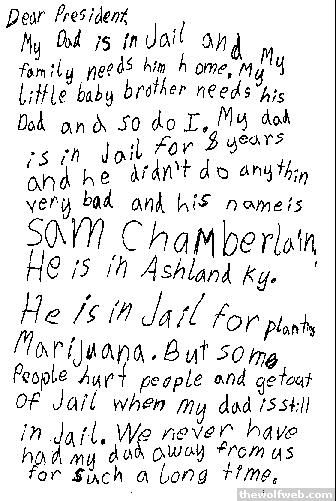 Dear President
My Dad is in Jail and My
family needs him home. My
little baby brother needs his
Dad and so do I. My dad
is in Jail for 8 years
and he didn't do anythin
very bad and his name is
Sam Chamberlain,
He is in Ashland Ky.
He is in Jail for planting
Marijuana. But some
People hurt people and get out
of Jail when my dad is still
in Jail. We never have
had my dad away from us
for such a long time.
thewolfweb.com